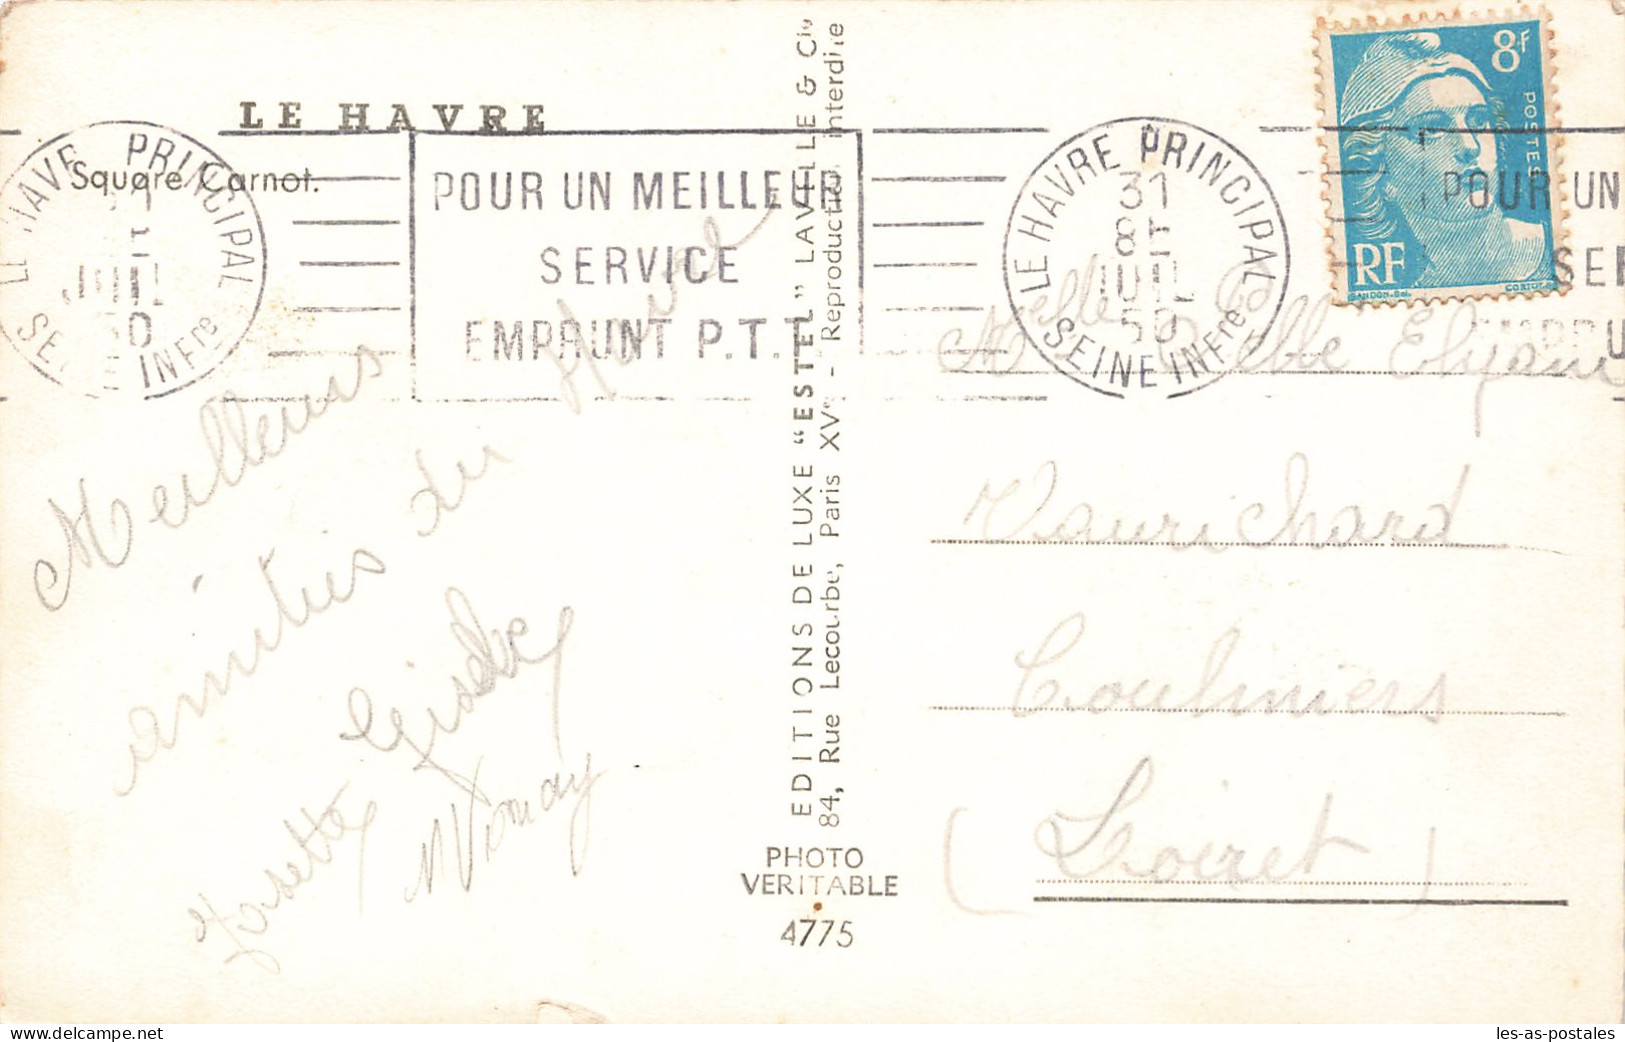 LE HAVRE
Square Carnot.
LE HAVRE PRINCIPAL
SEINE INFre
POUR UN MEILLEUR
SERVICE
EMPRUNT P.T.T.
Meilleurs
amitiés du Havre
Gisèle
Josette
EDITIONS DE LUXE "ESTEL" LAVELLE & Cie
84, Rue Lecourbe, Paris XVe - Reproduction interdite
PHOTO
VERITABLE
4775
LE HAVRE PRINCIPAL
31
8H
JUIL
50
SEINE INFre
8F
POSTES
RF
GANDON-Del.
POUR UN
Melle
Vaurichard
Coulmiers
(Loiret)
www.delcampe.net
les-as-postales